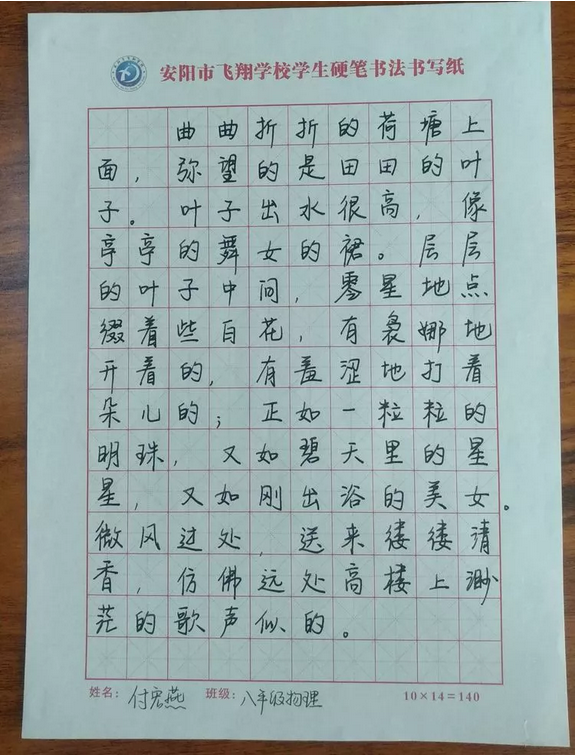 安阳市飞翔学校学生硬笔书法书写纸
曲曲折折的荷塘上
面，弥望的是田田的叶
子。叶子出水很高，像
亭亭的舞女的裙。层层
的叶子中间，零星地点
缀着些白花，有袅娜地
开着的，有羞涩地打着
朵儿的；正如一粒粒的
明珠，又如碧天里的星
星，又如刚出浴的美女。
微风过处，送来缕缕清
香，仿佛远处高楼上渺
茫的歌声似的。
姓名：付宏燕 班级：八年级物理 10×14=140